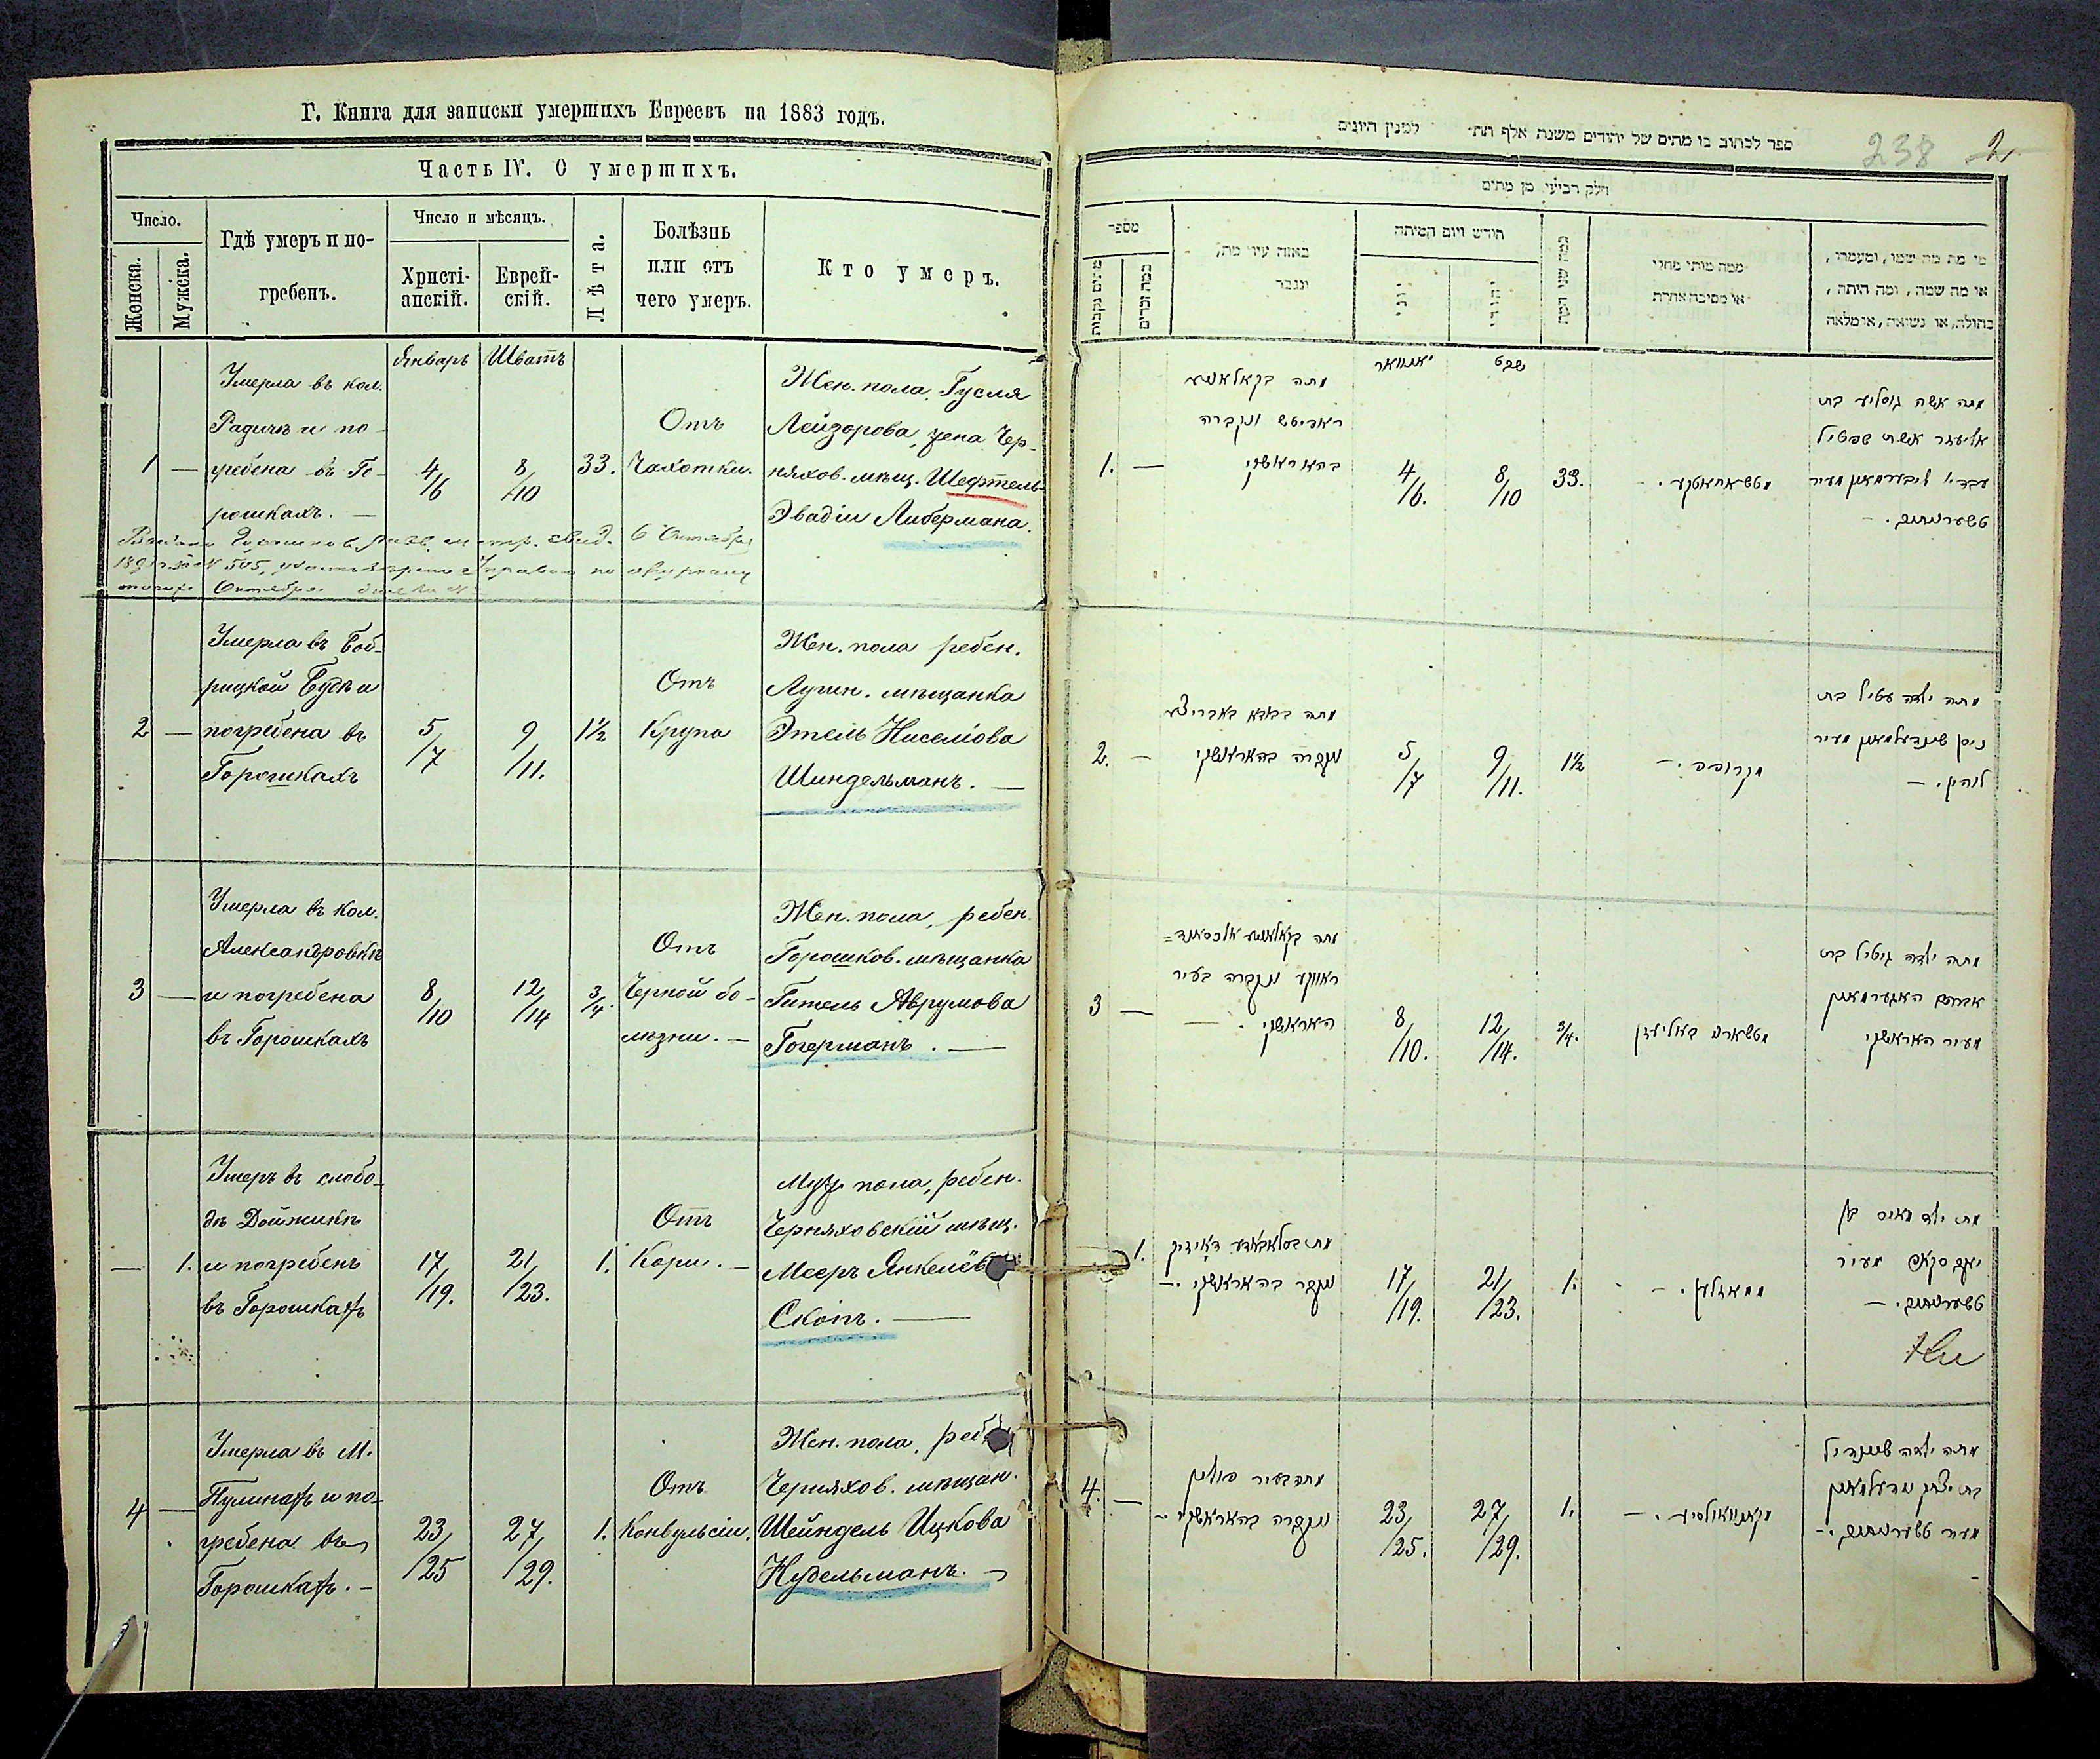 Г. Книга для записки умершихъ Евреевъ на 1883 годъ.
Часть IV. О умершихъ.
Число.
Женска.
Мужеска.
Гдѣ умеръ и по-
гребенъ.
Число и мѣсяцъ.
Христі-
анскій.
Еврей-
скій.
Лѣта.
Болѣзнь
или отъ
чего умеръ.
Кто умеръ.
Январь
Шватъ
1
—
Умерла въ кол.
Радичъ и по-
гребена въ Го-
рошкахъ. —
4/6
8/10
33.
Отъ
Чахотки.
Жен. пола, Гусля
Лейзорова, жена Чер-
няхов. мѣщ. Шефтель-
Эвадіи Либермана.
6 Октября
2
—
Умерла въ Боб-
рицкой Будѣ и
погребена въ
Горошкахъ
5/7
9/11.
1½
Отъ
Крупа
Жен. пола ребен.
Лугин. мѣщанка
Этель Ниселіова
Шиндельманъ. —
3
—
Умерла въ кол.
Александровкѣ
и погребена
въ Горошкахъ
8/10
12/14
3/4.
Отъ
Черной бо-
лѣзни. —
Жен. пола, ребен.
Горошков. мѣщанка
Гитель Аврумова
Гогерманъ. —
—
1.
Умеръ въ слобо-
дѣ Дойжикѣ
и погребенъ
въ Горошкахъ
17/19.
21/23.
1.
Отъ
Кори. —
Муж. пола, ребен.
Черняховскій мѣщ.
Мееръ Янкелёв
Скопъ. —
4
—
Умерла въ М.
Пулинахъ и по-
гребена въ
Горошкахъ. —
23/25
27/29.
1.
Отъ
Конвульсіи.
Жен. пола, реб
Черняхов. мѣщан.
Шейндель Ицкова
Нудельманъ. —
238
2.
ספר לכתוב בו מתים של יהודים משנת אלף תת׳ למנין היונים
חלק רביעי מן מתים
מספר
מתים נקבות
כמה זכרים
באיזה עיר מת,
ונגבר
חודש ויום המיתה
יוני
יהודי
כמה שני חייהם
ממה מותו מחלי
או מסיבה אחרת
מי מת מה שמו, ומעמדו,
או מה שמה, ומה היתה,
בתולה, או נשואה, או מלאה
יאנוואר
שבט
1. —
מתה בקאלאניע
ראדיטש ונקברה
בהאראשקי
4/6.
8/10
33.
מטשאחאטקע. —
מתה אשה גוסליע בת
אליעזר אשת שפטיל
עבדי׳ ליבערמאן מעיר
2. —
מתה בבודא באבריצע
ונקברה בהאראשקי
5/7
9/11.
1½
מקרופפ. —
מתה ילדה עטיל בת
ניסן שינדעלמאן מעיר
לוהין. —
3 —
מתה בקאלאניע אלכסאנד=
ראווקע ונקברה בעיר
האראשקי. —
8/10.
12/14.
3/4.
מתה ילדה גיטיל בת
אברהם האגערמאן
מעיר האראשקי
1.
ונקבר בהאראשקי. —
17/19.
21/23.
1.
ממאזלען. —
יעקב סקאפ מעיר
4. —
מתה בעיר פולין
ונקברה בהאראשקי —
23/25.
27/29.
1.
מקאנוואולסיע. —
מתה ילדה שיינדיל
בת יצחק נודעלמאן